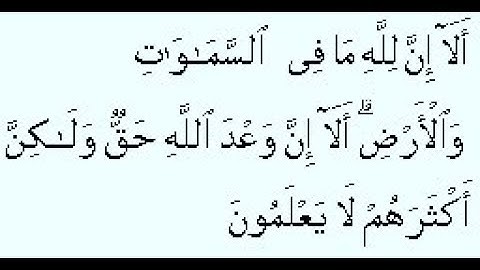 أَلَآ إِنَّ لِلَّهِ مَا فِى ٱلسَّمَـٰوَٰتِ
وَٱلْأَرْضِ ۗ أَلَآ إِنَّ وَعْدَ ٱللَّهِ حَقٌّ وَلَـٰكِنَّ
أَكْثَرَهُمْ لَا يَعْلَمُونَ